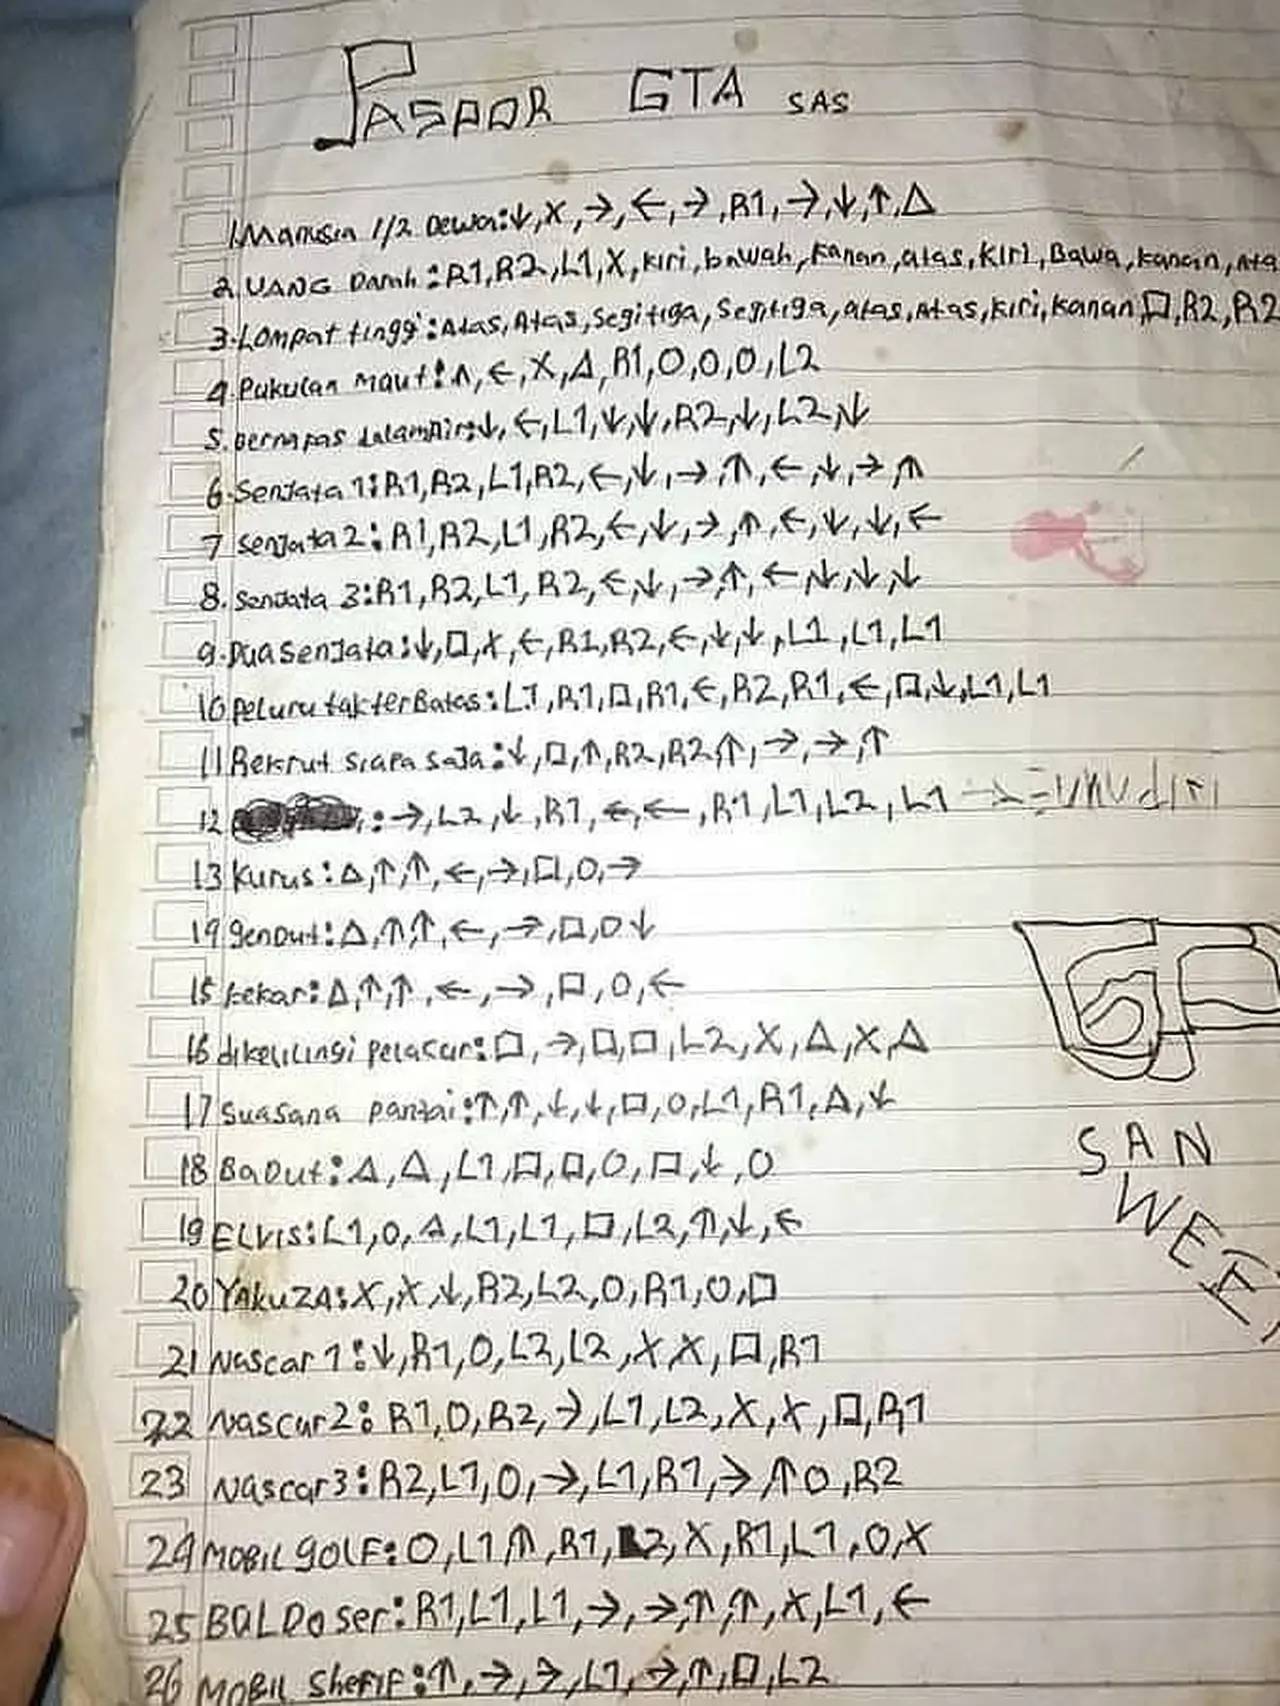 PASPOR GTA SAS
1.Manusia 1/2 Dewa:↓,X,→,←,→,R1,→,↓,↑,△
2.UANG Darah:R1,R2,L1,X,kiri,bawah,kanan,atas,KIRI,Bawa,kanan,Ata
3.Lompat tinggi:Atas,Atas,Segitiga,Segitiga,atas,Atas,kiri,kanan,□,R2,R2
4.Pukulan maut:↑,←,X,△,R1,O,O,O,L2
5.Bernapas dalam Air:↓,←,L1,↓,↓,R2,↓,L2,↓
6.Senjata 1:R1,R2,L1,R2,←,↓,→,↑,←,↓,→,↑
7 Senjata 2:R1,R2,L1,R2,←,↓,→,↑,←,↓,↓,←
8.Senjata 3:R1,R2,L1,R2,←,↓,→,↑,←,↓,↓,↓
9.Dua senjata:↓,□,X,←,R1,R2,←,↓,↓,L1,L1,L1
10 Peluru tak terBatas:L1,R1,□,R1,←,R2,R1,←,□,↓,L1,L1
11 Rekrut siapa saja:↓,□,↑,R2,R2↑,→,→,↑
12 :→,L2,↓,R1,←,←,R1,L1,L2,L1
13 Kurus:△,↑,↑,←,→,□,O,→
14 gendut:△,↑,↑,←,→,□,O↓
15 kekar:△,↑,↑,←,→,□,O,←
16 dikelilingi pelacur:□,→,□,□,L2,X,△,X,△
17 Suasana pantai:↑,↑,↓,↓,□,O,L1,R1,△,↓
18 Badut:△,△,L1,□,□,O,□,↓,O
19 ELVIS:L1,O,△,L1,L1,□,L2,↑,↓,←
20 YAKUZA:X,X,↓,R2,L2,O,R1,O,□
21 Nascar 1:↓,R1,O,L2,L2,X,X,□,R1
22 Nascar2:R1,O,R2,→,L1,L2,X,X,□,R1
23 Nascar3:R2,L1,O,→,L1,R1,→↑O,R2
24 MOBIL GOLF:O,L1,↑,R1,L2,X,R1,L1,O,X
25 BULDoser:R1,L1,L1,→,→,↑,↑,X,L1,←
26 MOBIL Sherif:↑,→,→,L1,→,↑,□,L2
SAN